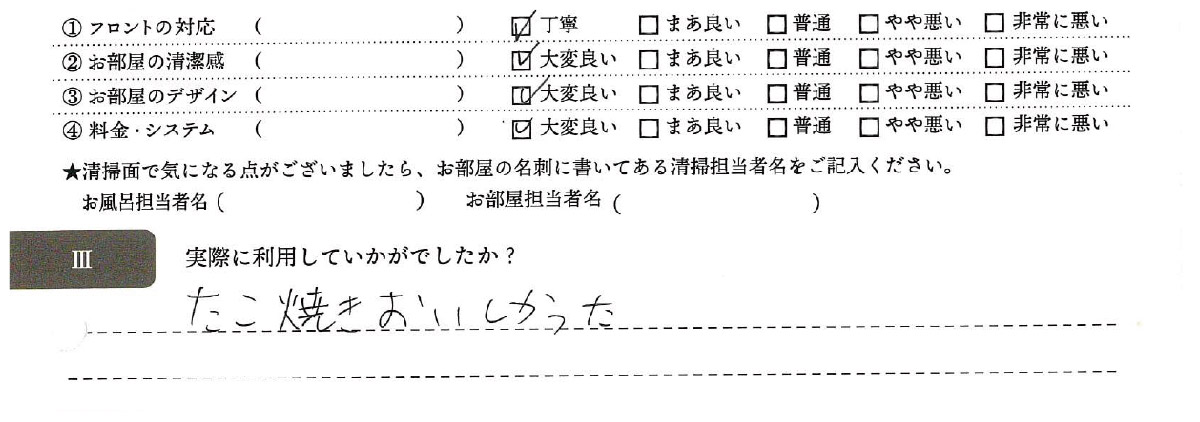 ① フロントの対応 ( ) ☑ 丁寧 □ まあ良い □ 普通 □ やや悪い □ 非常に悪い
② お部屋の清潔感 ( ) ☑ 大変良い □ まあ良い □ 普通 □ やや悪い □ 非常に悪い
③ お部屋のデザイン ( ) ☑ 大変良い □ まあ良い □ 普通 □ やや悪い □ 非常に悪い
④ 料金・システム ( ) ☑ 大変良い □ まあ良い □ 普通 □ やや悪い □ 非常に悪い
★清掃面で気になる点がございましたら、お部屋の名刺に書いてある清掃担当者名をご記入ください。
お風呂担当者名 ( ) お部屋担当者名 ( )
Ⅲ 実際に利用していかがでしたか？
たこ焼きおいしかった